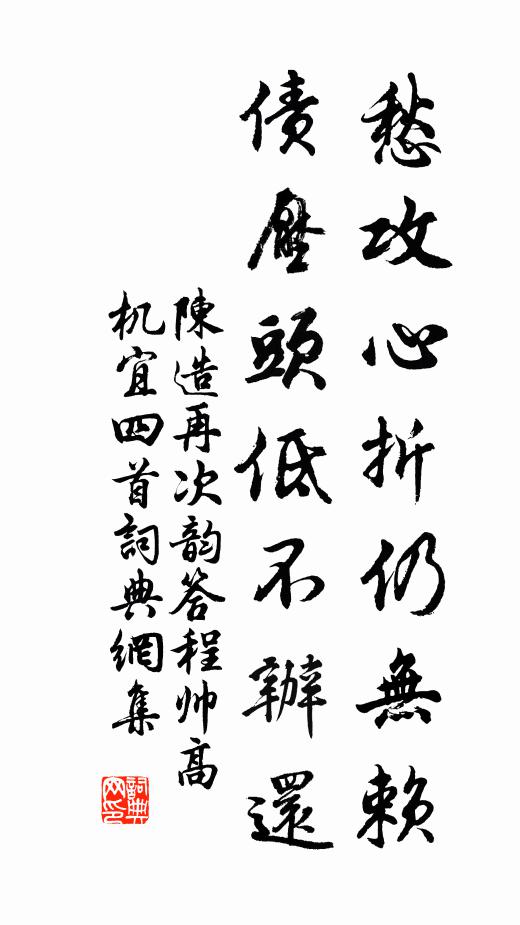 愁攻心折仍無賴
債壓頭低不辦還
陳造再次韵答程帅高
机宜四首詞典網集
詞典
网印